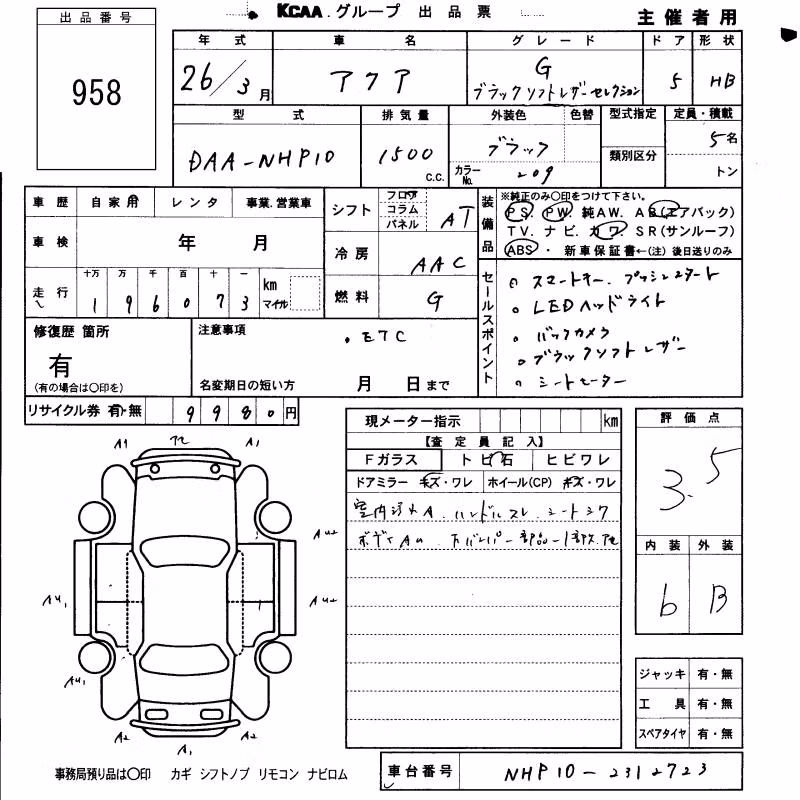 KCAA.グループ 出品票
主催者用
出品番号
958
年式 車名 グレード ドア 形状
26/3月 アクア G
ブラックソフトレザーセレクション 5 HB
型式 排気量 外装色 色替 型式指定 定員・積載
DAA-NHP10 1500 c.c. ブラック 5名
カラーNo. 209 類別区分 トン
車歴 自家用 レンタ 事業.営業車
車検 年 月
走行 十万 万 千 百 十 一 km マイル
1 9 6 0 7 3
シフト フロア コラム パネル AT
冷房 AAC
燃料 G
装備品
※純正のみ〇印をつけて下さい。
PS. PW. 純AW. AB(エアバック)
TV. ナビ. カワ. SR(サンルーフ)
ABS・ 新車保証書←(注) 後日送りのみ
セールスポイント
スマートキー. プッシュスタート
LEDヘッドライト
バックカメラ
ブラックソフトレザー
シートヒーター
修復歴 箇所
有
(有の場合は〇印を)
注意事項
.ETC
名変期日の短い方 月 日まで
リサイクル券 有・無 9980円
現メーター指示 km
【査定員記入】
Fガラス トビ石 ヒビワレ
ドアミラー キズ・ワレ ホイール(CP) キズ・ワレ
室内汚れA. ハンドルスレ. シートシワ
評価点
3.5
内装 外装
6 B
A1 A1
AU2
AU1 AU2
AU1
A2 A1 A2
ジャッキ 有・無
工具 有・無
スペアタイヤ 有・無
事務局預り品は〇印 カギ シフトノブ リモコン ナビロム
車台番号 NHP10-2312723